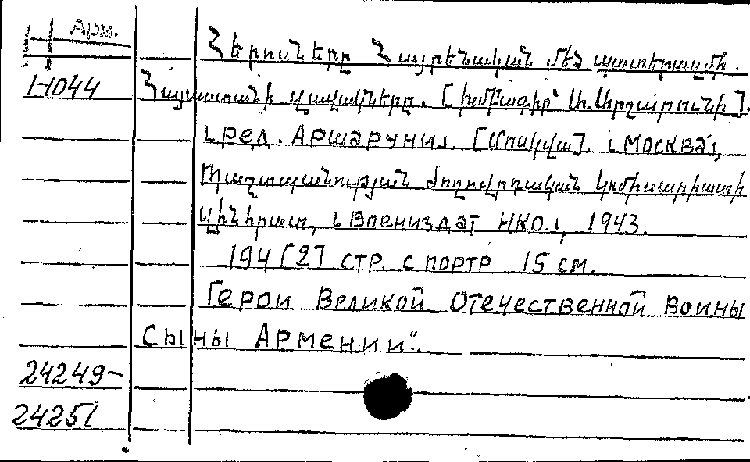 Арм.
Հերոսները Հայրենական մեծ պատերազմի.
1-1044 Հայաստանի զավակները. [Խմբագիր՝ Ա. Արշարունի].
ред. Аршаруни. [Մոսկվա]. Москва,
Պաշտպանության Ժողովրդական Կոմիսարիատի
Воениздат НКО, 1943.
194 [2] стр. с портр 15 см.
Герои Великой Отечественной Воины
Сыны Армении".
24249-
24251